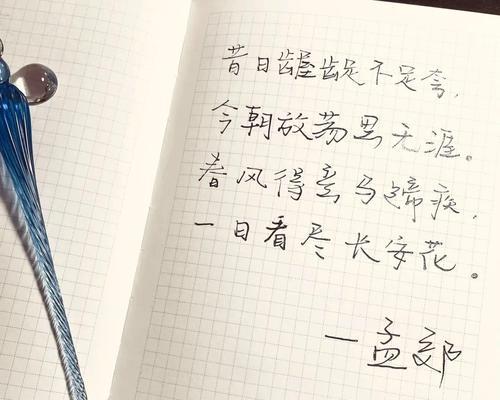 昔日龌龊不足夸，
今朝放荡思无涯。
春风得意马蹄疾，
一日看尽长安花。
一孟郊